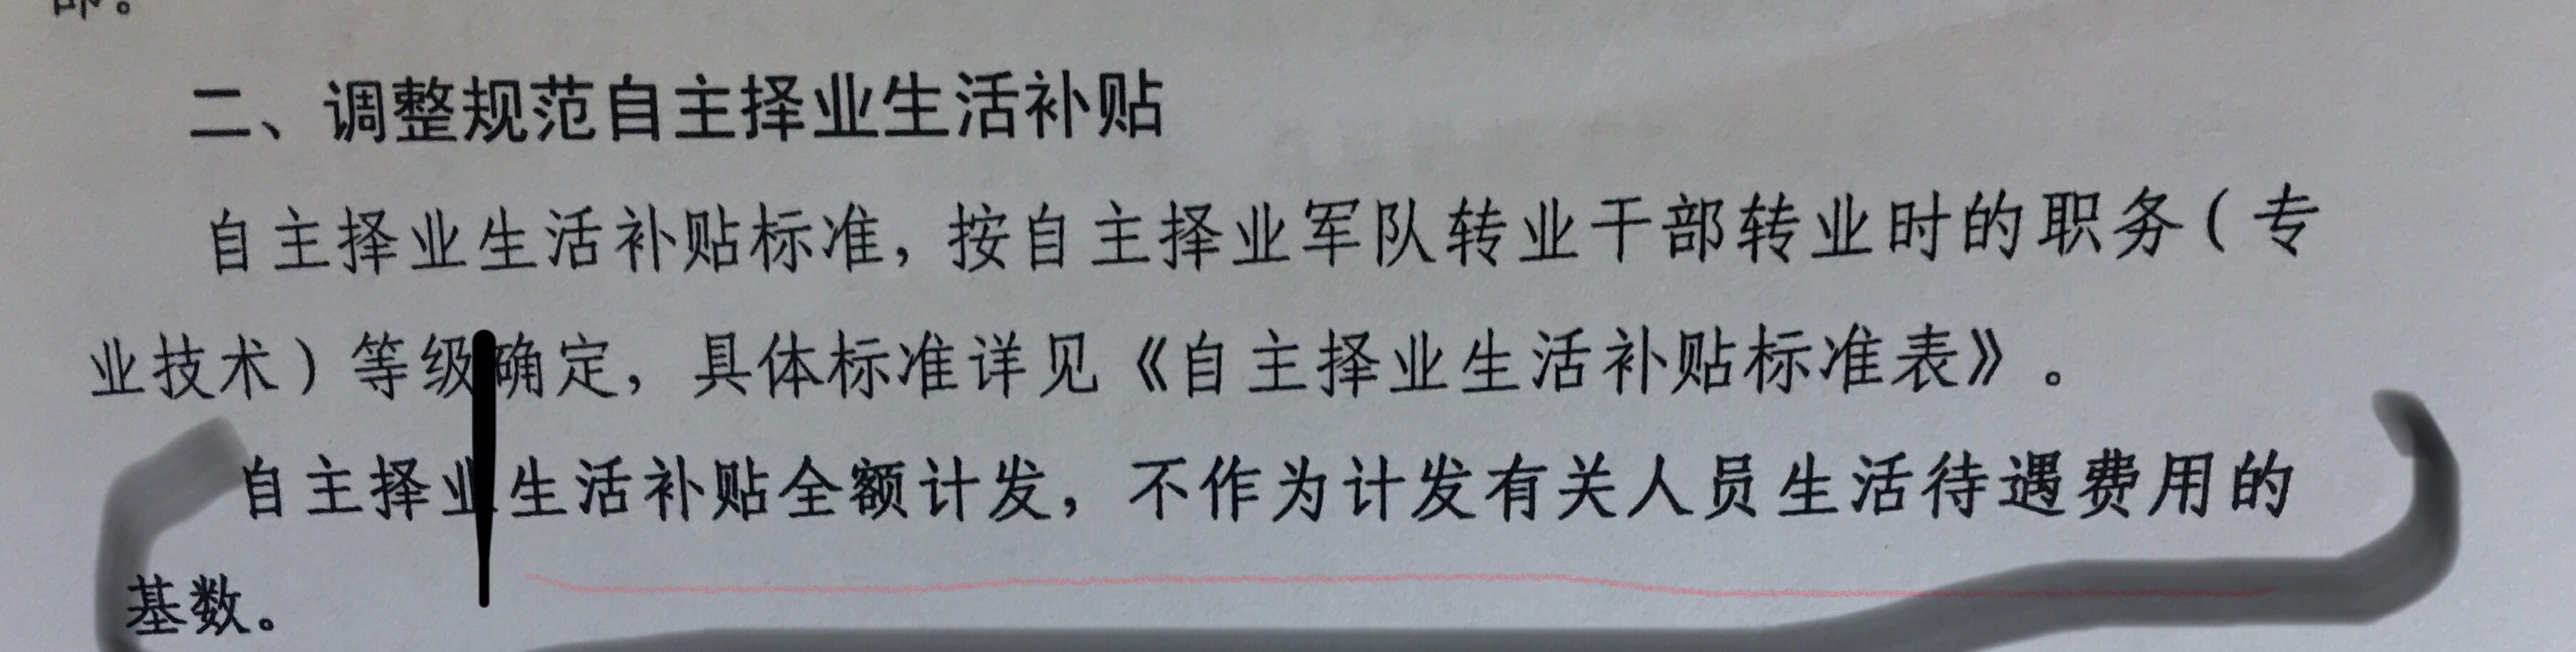 二、调整规范自主择业生活补贴
自主择业生活补贴标准，按自主择业军队转业干部转业时的职务（专
业技术）等级确定，具体标准详见《自主择业生活补贴标准表》。
自主择业生活补贴全额计发，不作为计发有关人员生活待遇费用的
基数。